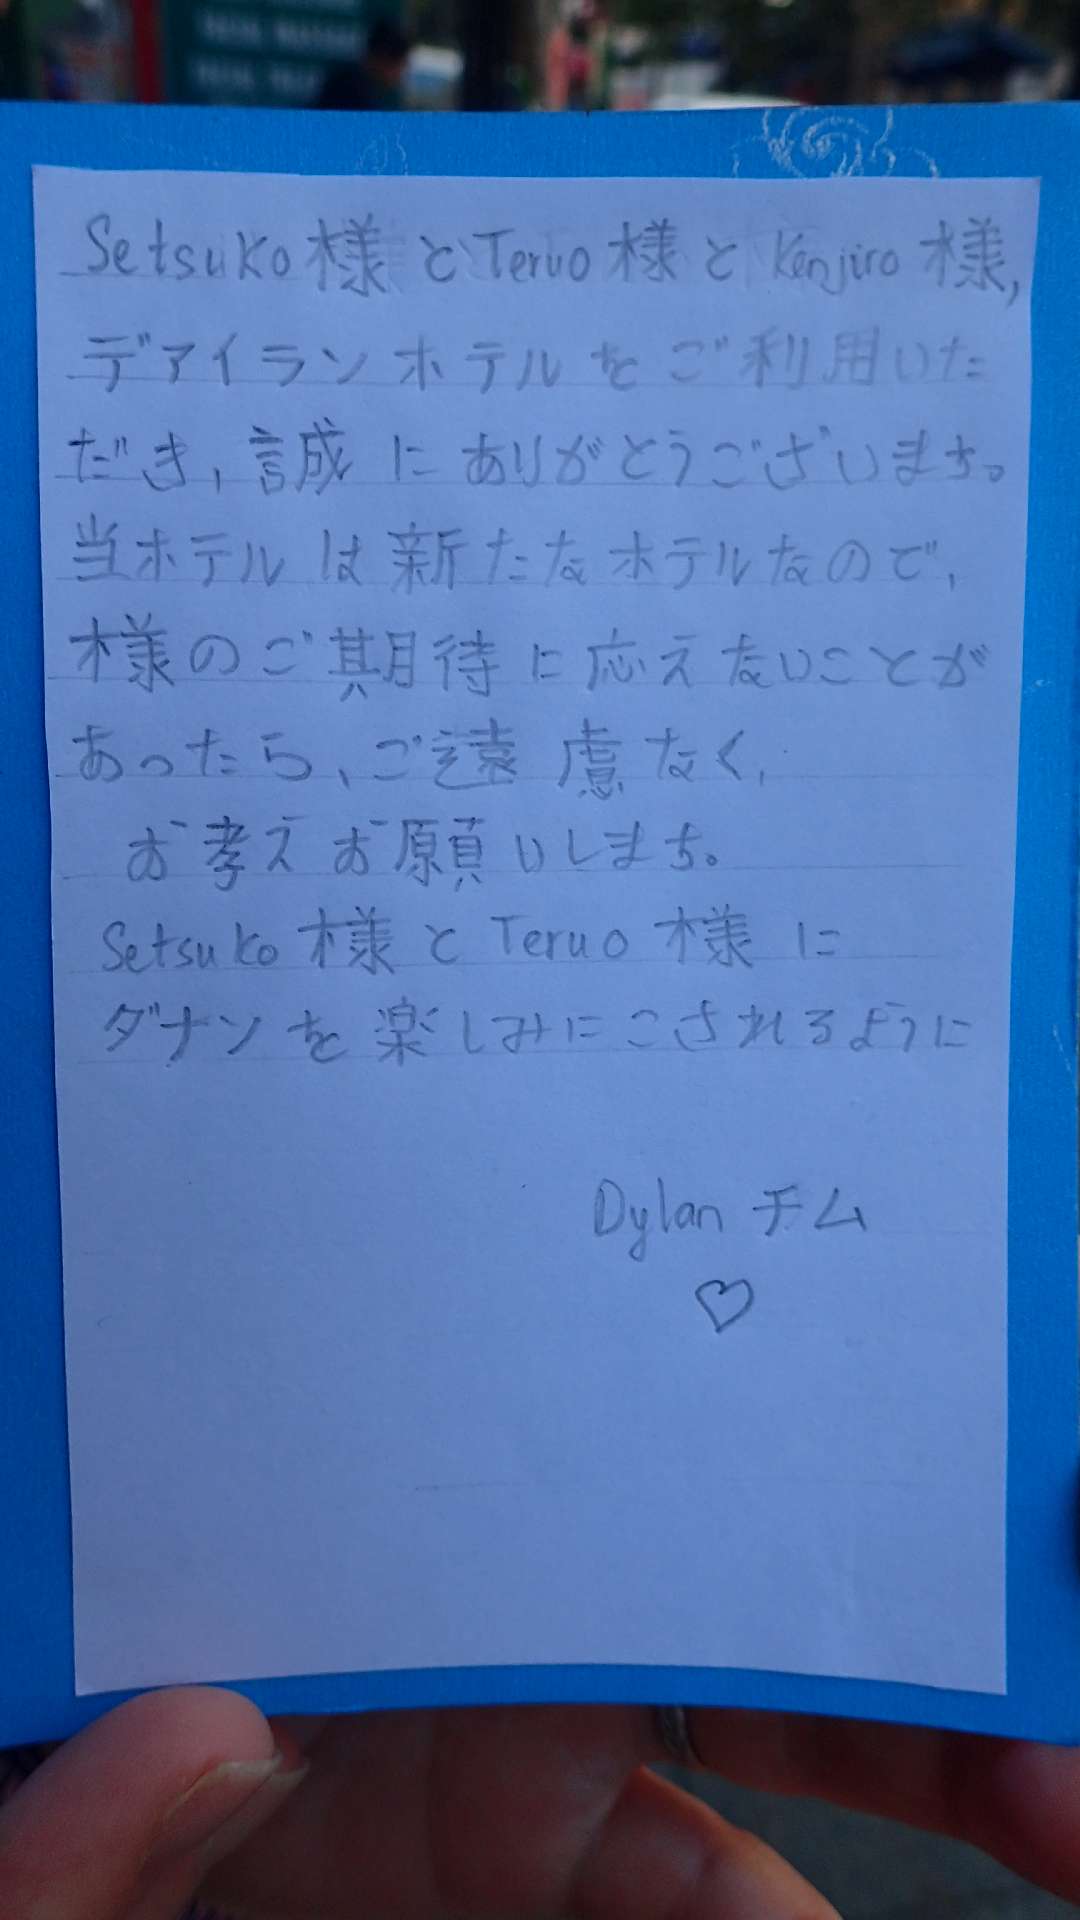 Setsuko様とTeruo様とKenjiro様,
デァイランホテルをご利用いた
だき,誠にありがとうございまち。
当ホテルは新たなホテルなので,
様のご期待に応えないことが
あったら、ご遠慮なく,
お考えお願いしまち。
Setsuko様とTeruo様に
ダナンを楽しみにこされるように
Dylanチム
♡